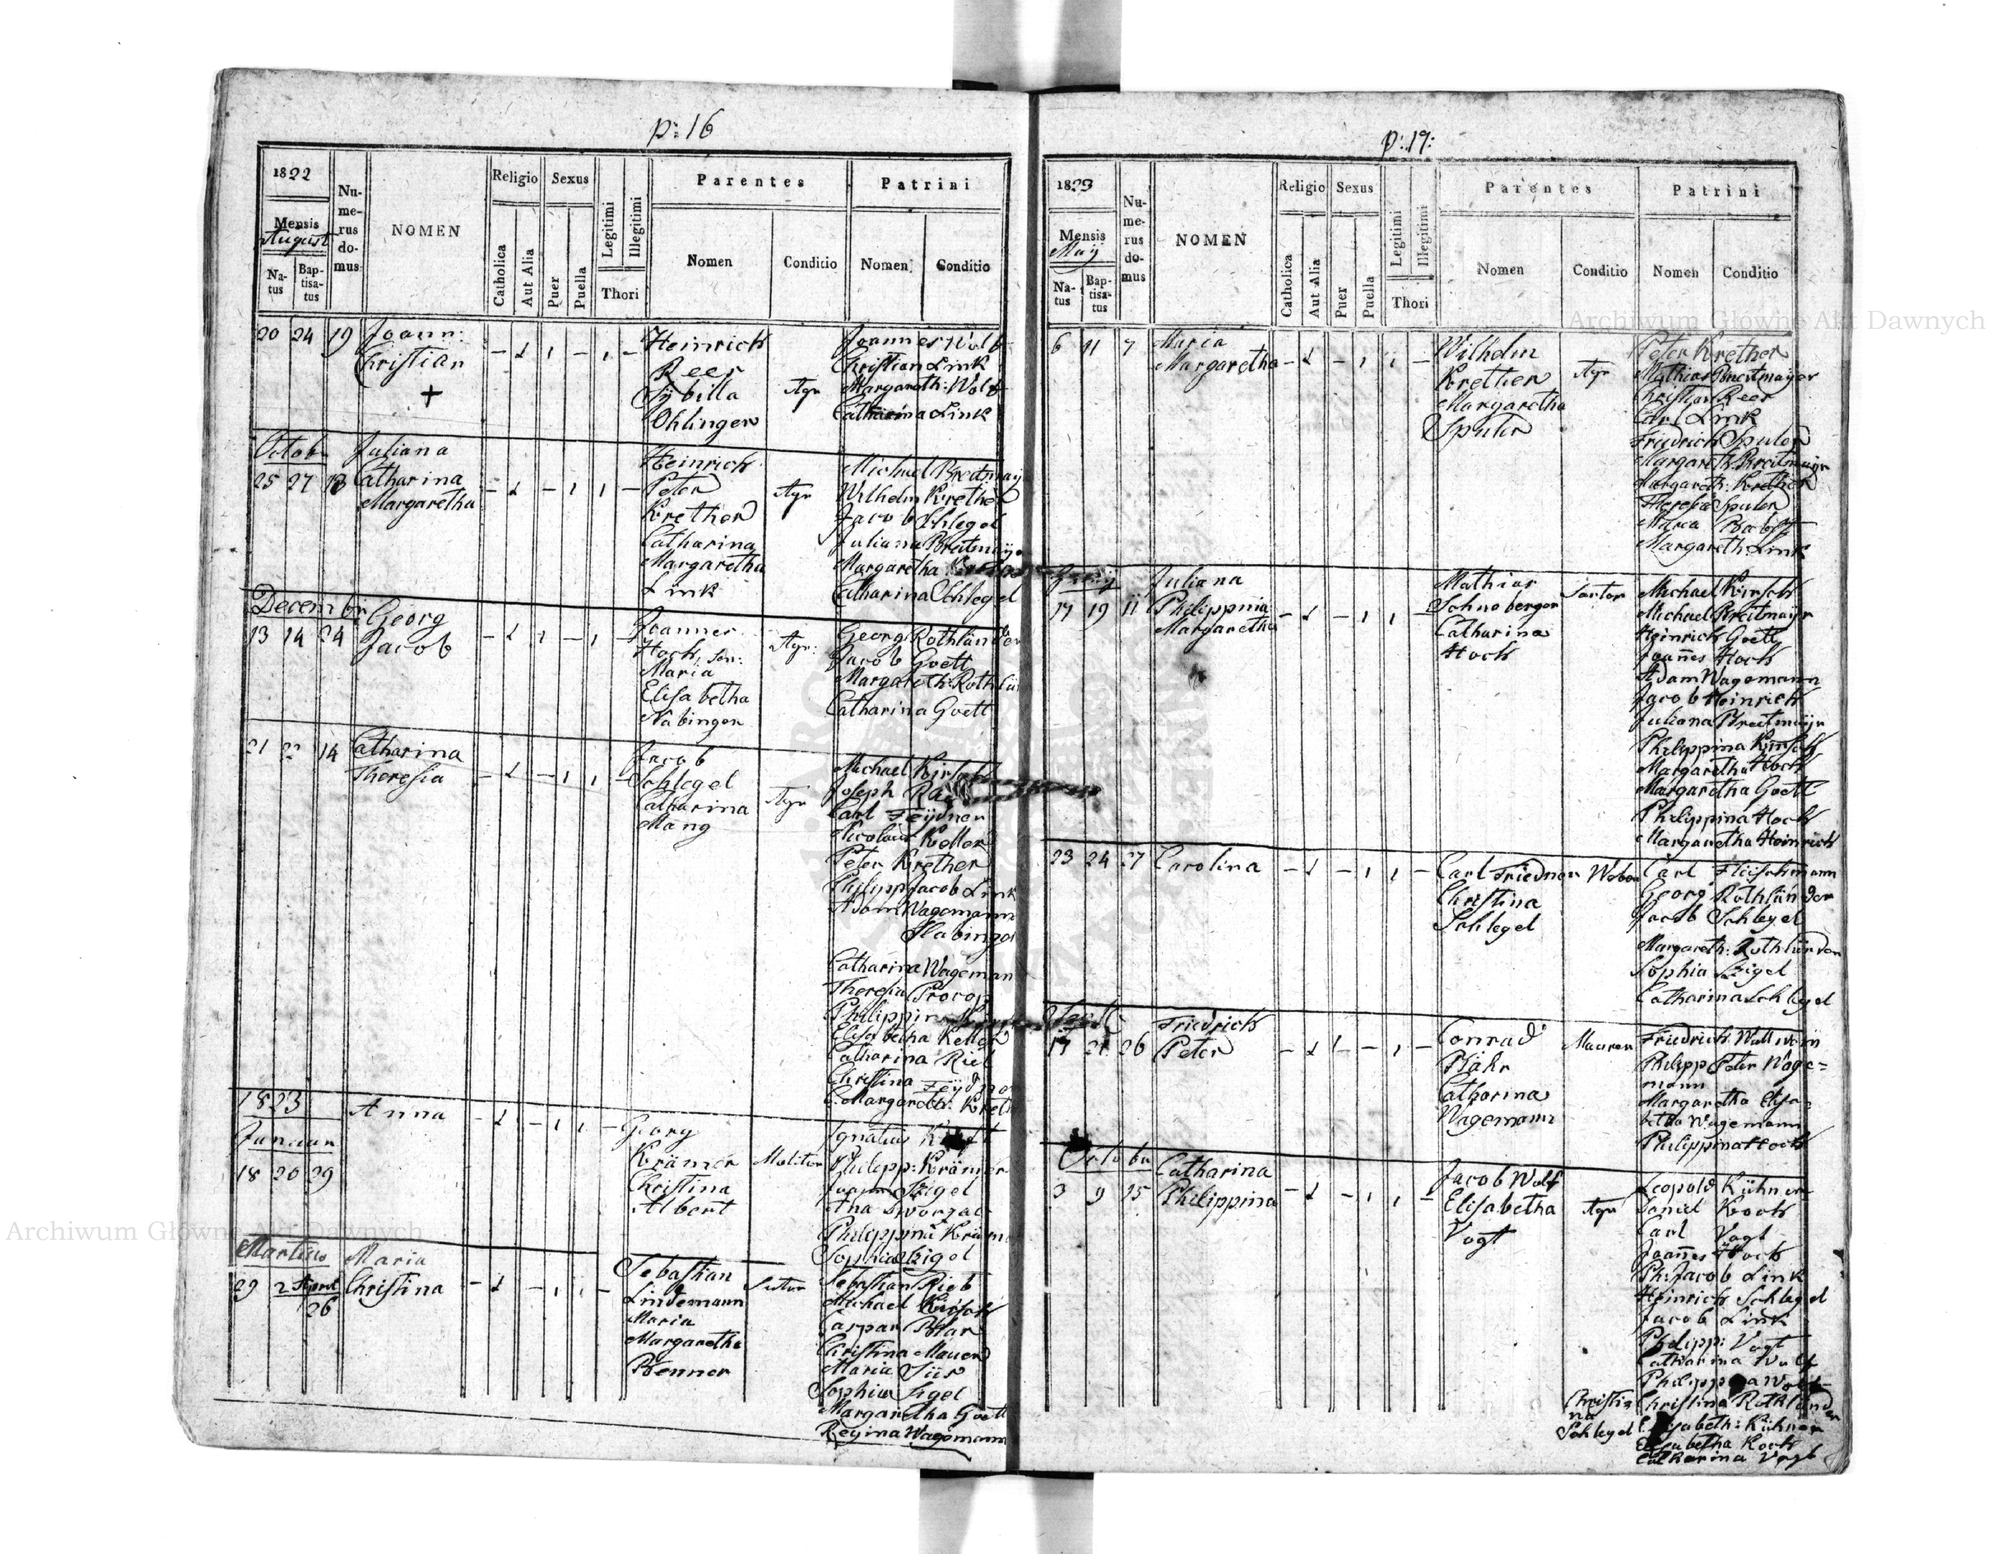 p: 16
1822
Mensis
August
Na-
tus
Bap-
tisa-
tus
Nu-
me-
rus
do-
mus
NOMEN
Religio
Catholica
Aut Alia
Sexus
Puer
Puella
Legitimi
Illegitimi
Thori
Parentes
Nomen
Conditio
Patrini
Nomen
Conditio
20 24 19 Joann:
Christian
+
Heinrich
Reer
Sybilla
Ohlinger
Agr
Joannes Wolf
Christian Link
Margareth: Wolf
Catharina Link
Octob
25 27 13
Juliana
Catharina
Margaretha
Heinrich
Peter
Krether
Catharina
Margaretha
Link
Agr
Michael Breitmay
Wilhelm Krether
Jacob Schlegel
Juliana Breitmayr
Margaretha
Catharina Schlegel
Decembr
13 14 24
Georg
Jacob
Joannes
Hoch, sen:
Maria
Elisabetha
Nabinger
Agr:
Georg Rothländer
Jacob Goett
Margareth: Rothlän
Catharina Goett
21 22 14
Catharina
Theresia
Jacob
Schlegel
Catharina
Mang
Agr
Michael Kirsch
Joseph
Carl Feydner
Nicolaus Keller
Peter Krether
Philipp Jacob Link
Adam Wagemann
Habinger
Catharina Wageman
Theresia Procop
Philippina
Elisabetha Keller
Catharina Rieb
Christina Feydner
Margareth: Kreth
1823
Januar
18 20 29
Anna
Georg
Krämer
Christina
Albert
Molitor
Ignatius
Philipp: Krämer
Joann Sigel
Ana
Philippina Kräme
Sophia Sigel
Martius
29 2 April
26
Maria
Christina
Sebastian
Lindemann
Maria
Margaretha
Renner
Sutor
Sebastian Rieb
Michael Kirsch
Caspar Bear
Christina Mauer
Maria Süs
Sophia Sigel
Margaretha Goett
Regina Wagemann
p: 17:
1823
Mensis
May
Na-
tus
Bap-
tisa-
tus
Nu-
me-
rus
do-
mus
NOMEN
Religio
Catholica
Aut Alia
Sexus
Puer
Puella
Legitimi
Illegitimi
Thori
Parentes
Nomen
Conditio
Patrini
Nomen
Conditio
6 11 7
Maria
Margaretha
Wilhelm
Krether
Margaretha
Spuler
Agr
Peter Krether
Mathias Breitmayer
Christian Reer
Carl Link
Friedrich Spuler
Margareth: Breitmayr
Margareth: Krether
Theresia Spuler
Maria
Margareth: Link
17 19 11
Juliana
Philippina
Margaretha
Mathias
Schneberger
Catharina
Hoch
Sartor
Michael Kirsch
Michael Breitmayr
Heinrich Goett
Joañes Hoch
Adam Wagemann
Jacob Heinrich
Juliana Breitmayr
Philippina Kirsch
Margaretha Hoch
Margaretha Goett
Philippina Hoch
Margaretha Heinrich
23 24 27
Carolina
Carl Friedner
Christina
Schlegel
Weber
Carl Fleischmann
Georg Rothländer
Jacob Schlegel
Margareth: Rothländer
Sophia Sigel
Catharina Schlegel
17 21 26
Friedrich
Peter
Conrad
Bähr
Catharina
Wagemann
Maurer
Friedrich Wollwein
Philipp Peter Wage=
mann
Margaretha Elisa-
betha Wagemann
Philippina Hoch
October
3 9 15
Catharina
Philippina
Jacob Wolf
Elisabetha
Vogt
Agr
Leopold Kühner
Daniel Koch
Carl Vogt
Joañes Hoch
Ph: Jacob Link
Heinrich Schlegel
Jacob Link
Philipp: Vogt
Catharina Wolf
Philippina Wolf
Christina Rothländer
Christi
na
Schlegel
Elisabeth: Kühner
Elisabetha Koch
Catharina Vogt
Archiwum Główne Akt Dawnych
Archiwum Główne Akt Dawnych